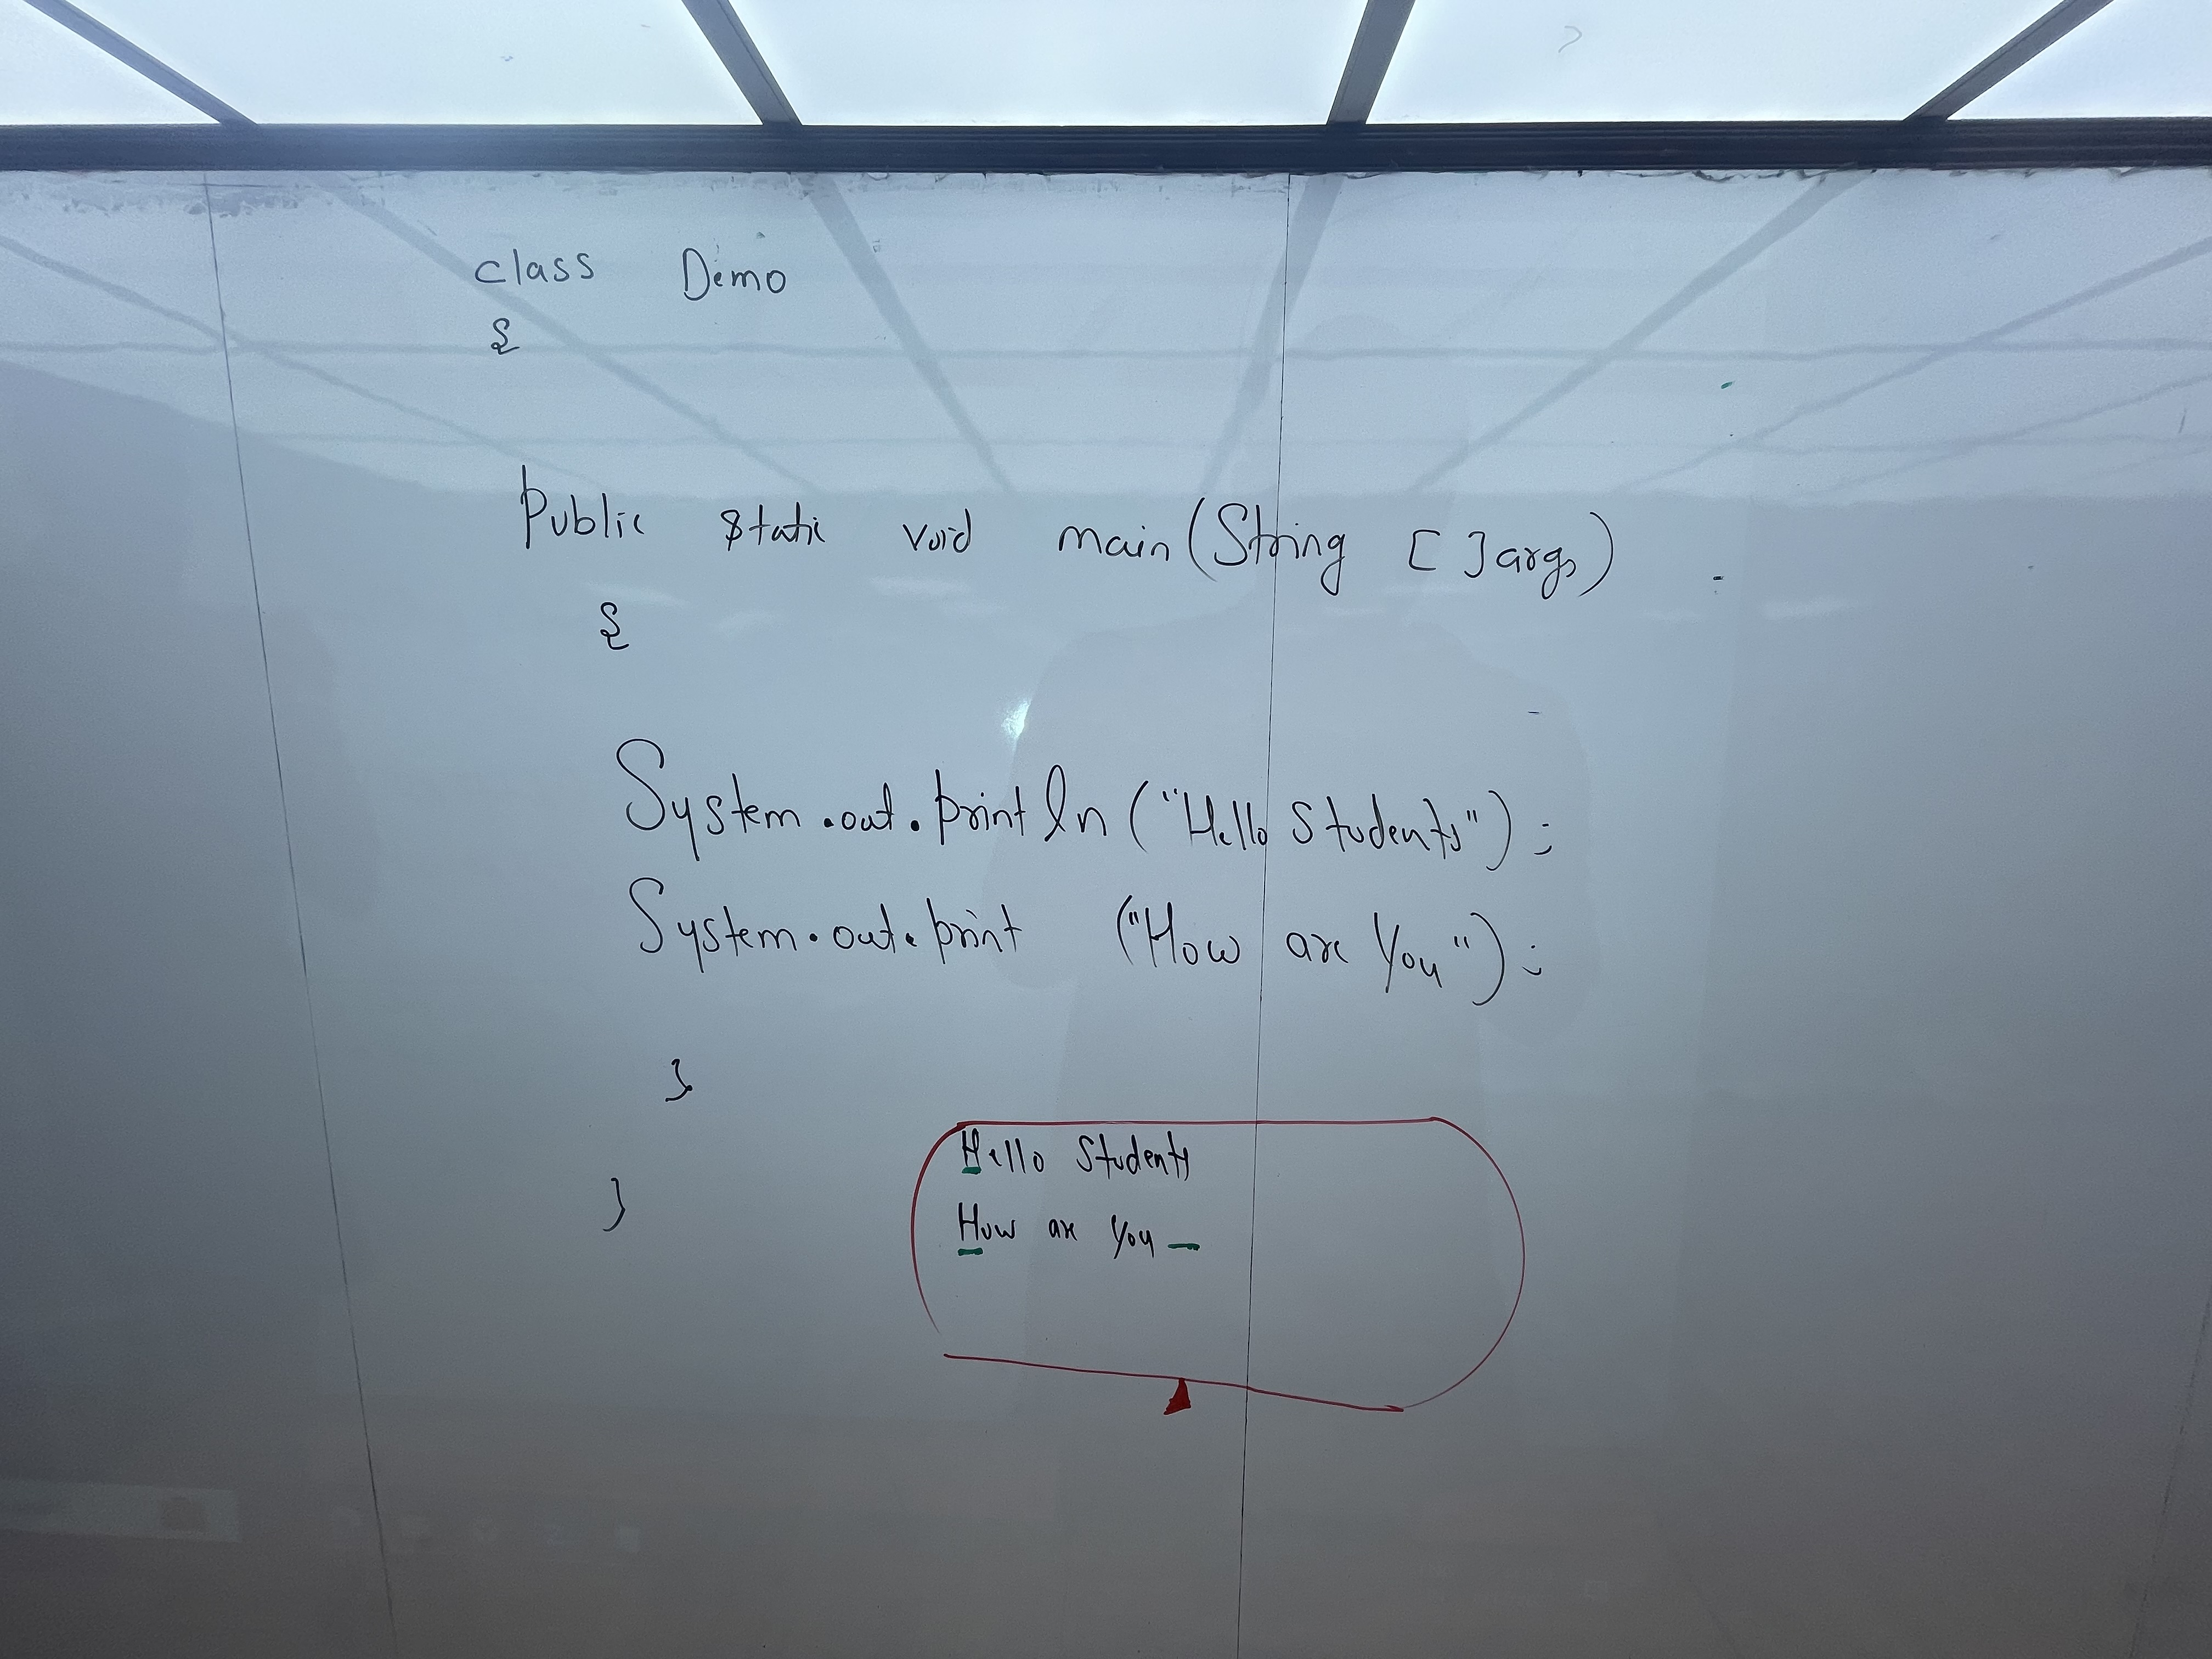 class Demo
{
Public static void main(String []args)
{
System.out.println("Hello Students");
System.out.print ("How are You");
}
}
Hello Students
How are You _